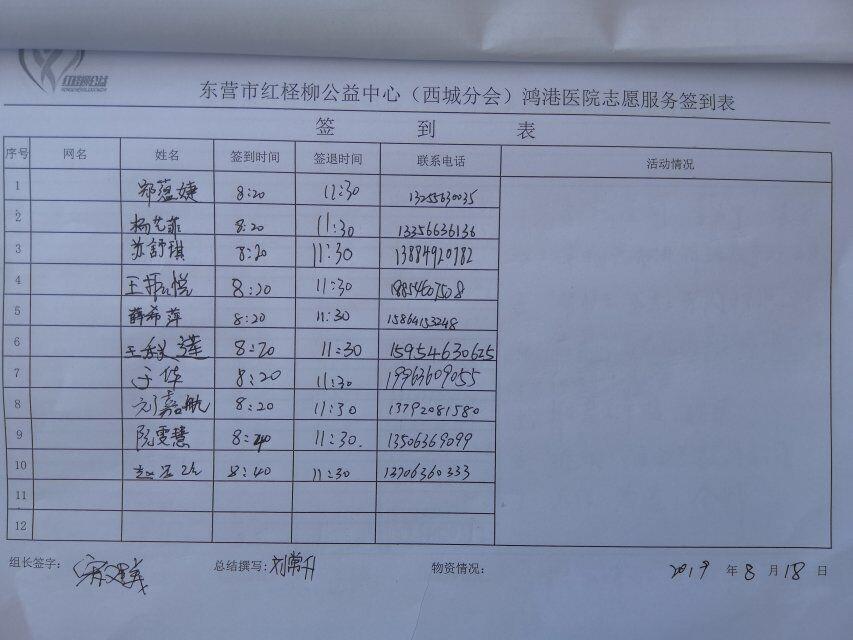 红柽柳公益
东营市红柽柳公益中心（西城分会）鸿港医院志愿服务签到表
签 到 表
序号 网名 姓名 签到时间 签退时间 联系电话 活动情况
1 郑蕴婕 8:20 11:30 13255630035
2 杨艺菲 8:20 11:30 13356636136
3 苏舒琪 8:20 11:30 13884920782
4 8:20 11:30 18854607508
5 薛希萍 8:20 11:30 15864153248
6 8:20 11:30 15954630625
7 于华 8:20 11:30 19963609055
8 刘嘉航 8:20 11:30 13792081580
9 阮雯慧 8:40 11:30. 13506369099
10 8:40 11:30 13706360333
11
12
组长签字: 总结撰写:刘常升 物资情况: 2019 年 8 月 18 日